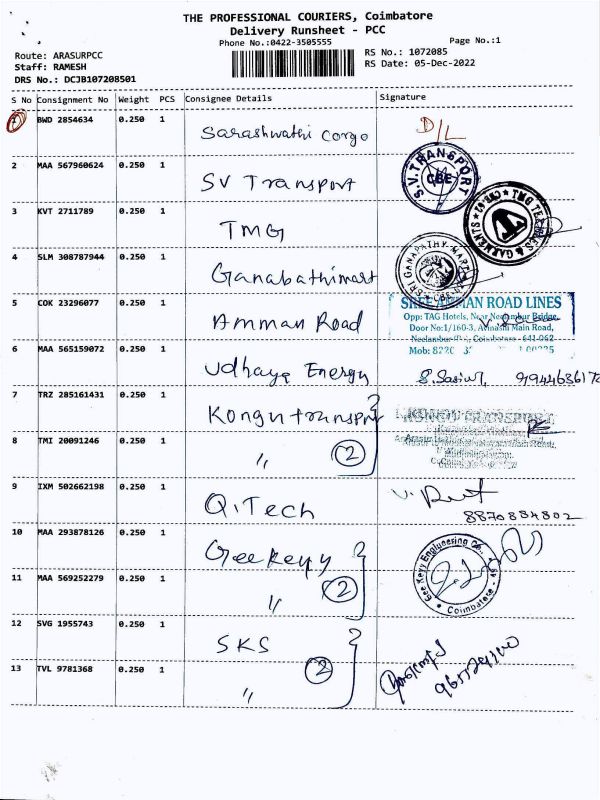 THE PROFESSIONAL COURIERS, Coimbatore
Delivery Runsheet - PCC
Phone No.:0422-3505555
Page No.:1
Route: ARASURPCC
Staff: RAMESH
DRS No.: DCJB107208501
RS No.: 1072085
RS Date: 05-Dec-2022
S No Consignment No Weight PCS Consignee Details Signature
1 BWD 2854634 0.250 1 Sarashwathi Corgo D/L
2 MAA 567960624 0.250 1 SV Transport S.V.TRANSPORT CBE
3 KVT 2711789 0.250 1 TMG TMG & GARMENTS
4 SLM 308787944 0.250 1 Ganabathimart SRI GANAPATHY
5 COK 23296077 0.250 1 Amman Road
SREE AMMAN ROAD LINES
Opp: TAG Hotels, Near Neelambur Bridge,
Door No:1/160-3, Main Road,
Coimbatore - 641-062
Mob:
6 MAA 565159072 0.250 1 Udhaya Energy
7 TRZ 285161431 0.250 1 Kongu transport
KONGU TRANSPORT
8 TMI 20091246 0.250 1 〃 2
9 IXM 502662198 0.250 1 Q.Tech
8870884802
10 MAA 293878126 0.250 1 Geekeyy
Gee Keyy Engineering Coimbatore
11 MAA 569252279 0.250 1 〃 2
12 SVG 1955743 0.250 1 SKS
13 TVL 9781368 0.250 1 〃 2